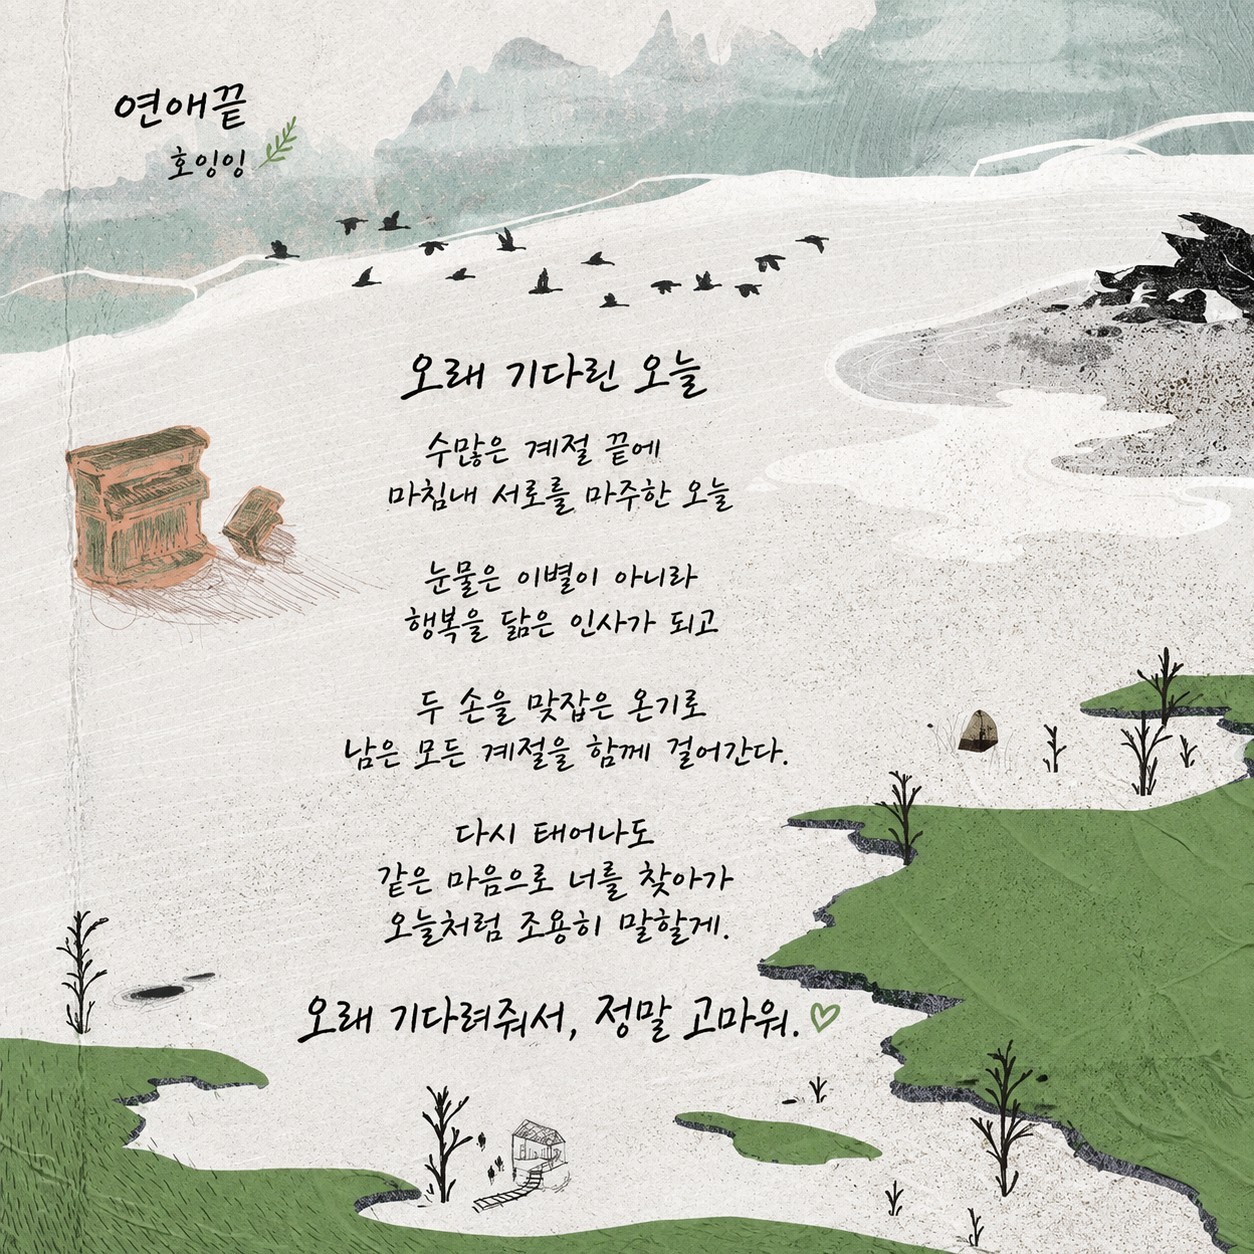 연애끝
호잉잉
오래 기다린 오늘
수많은 계절 끝에
마침내 서로를 마주한 오늘
눈물은 이별이 아니라
행복을 닮은 인사가 되고
두 손을 맞잡은 온기로
남은 모든 계절을 함께 걸어간다.
다시 태어나도
같은 마음으로 너를 찾아가
오늘처럼 조용히 말할게.
오래 기다려줘서, 정말 고마워.